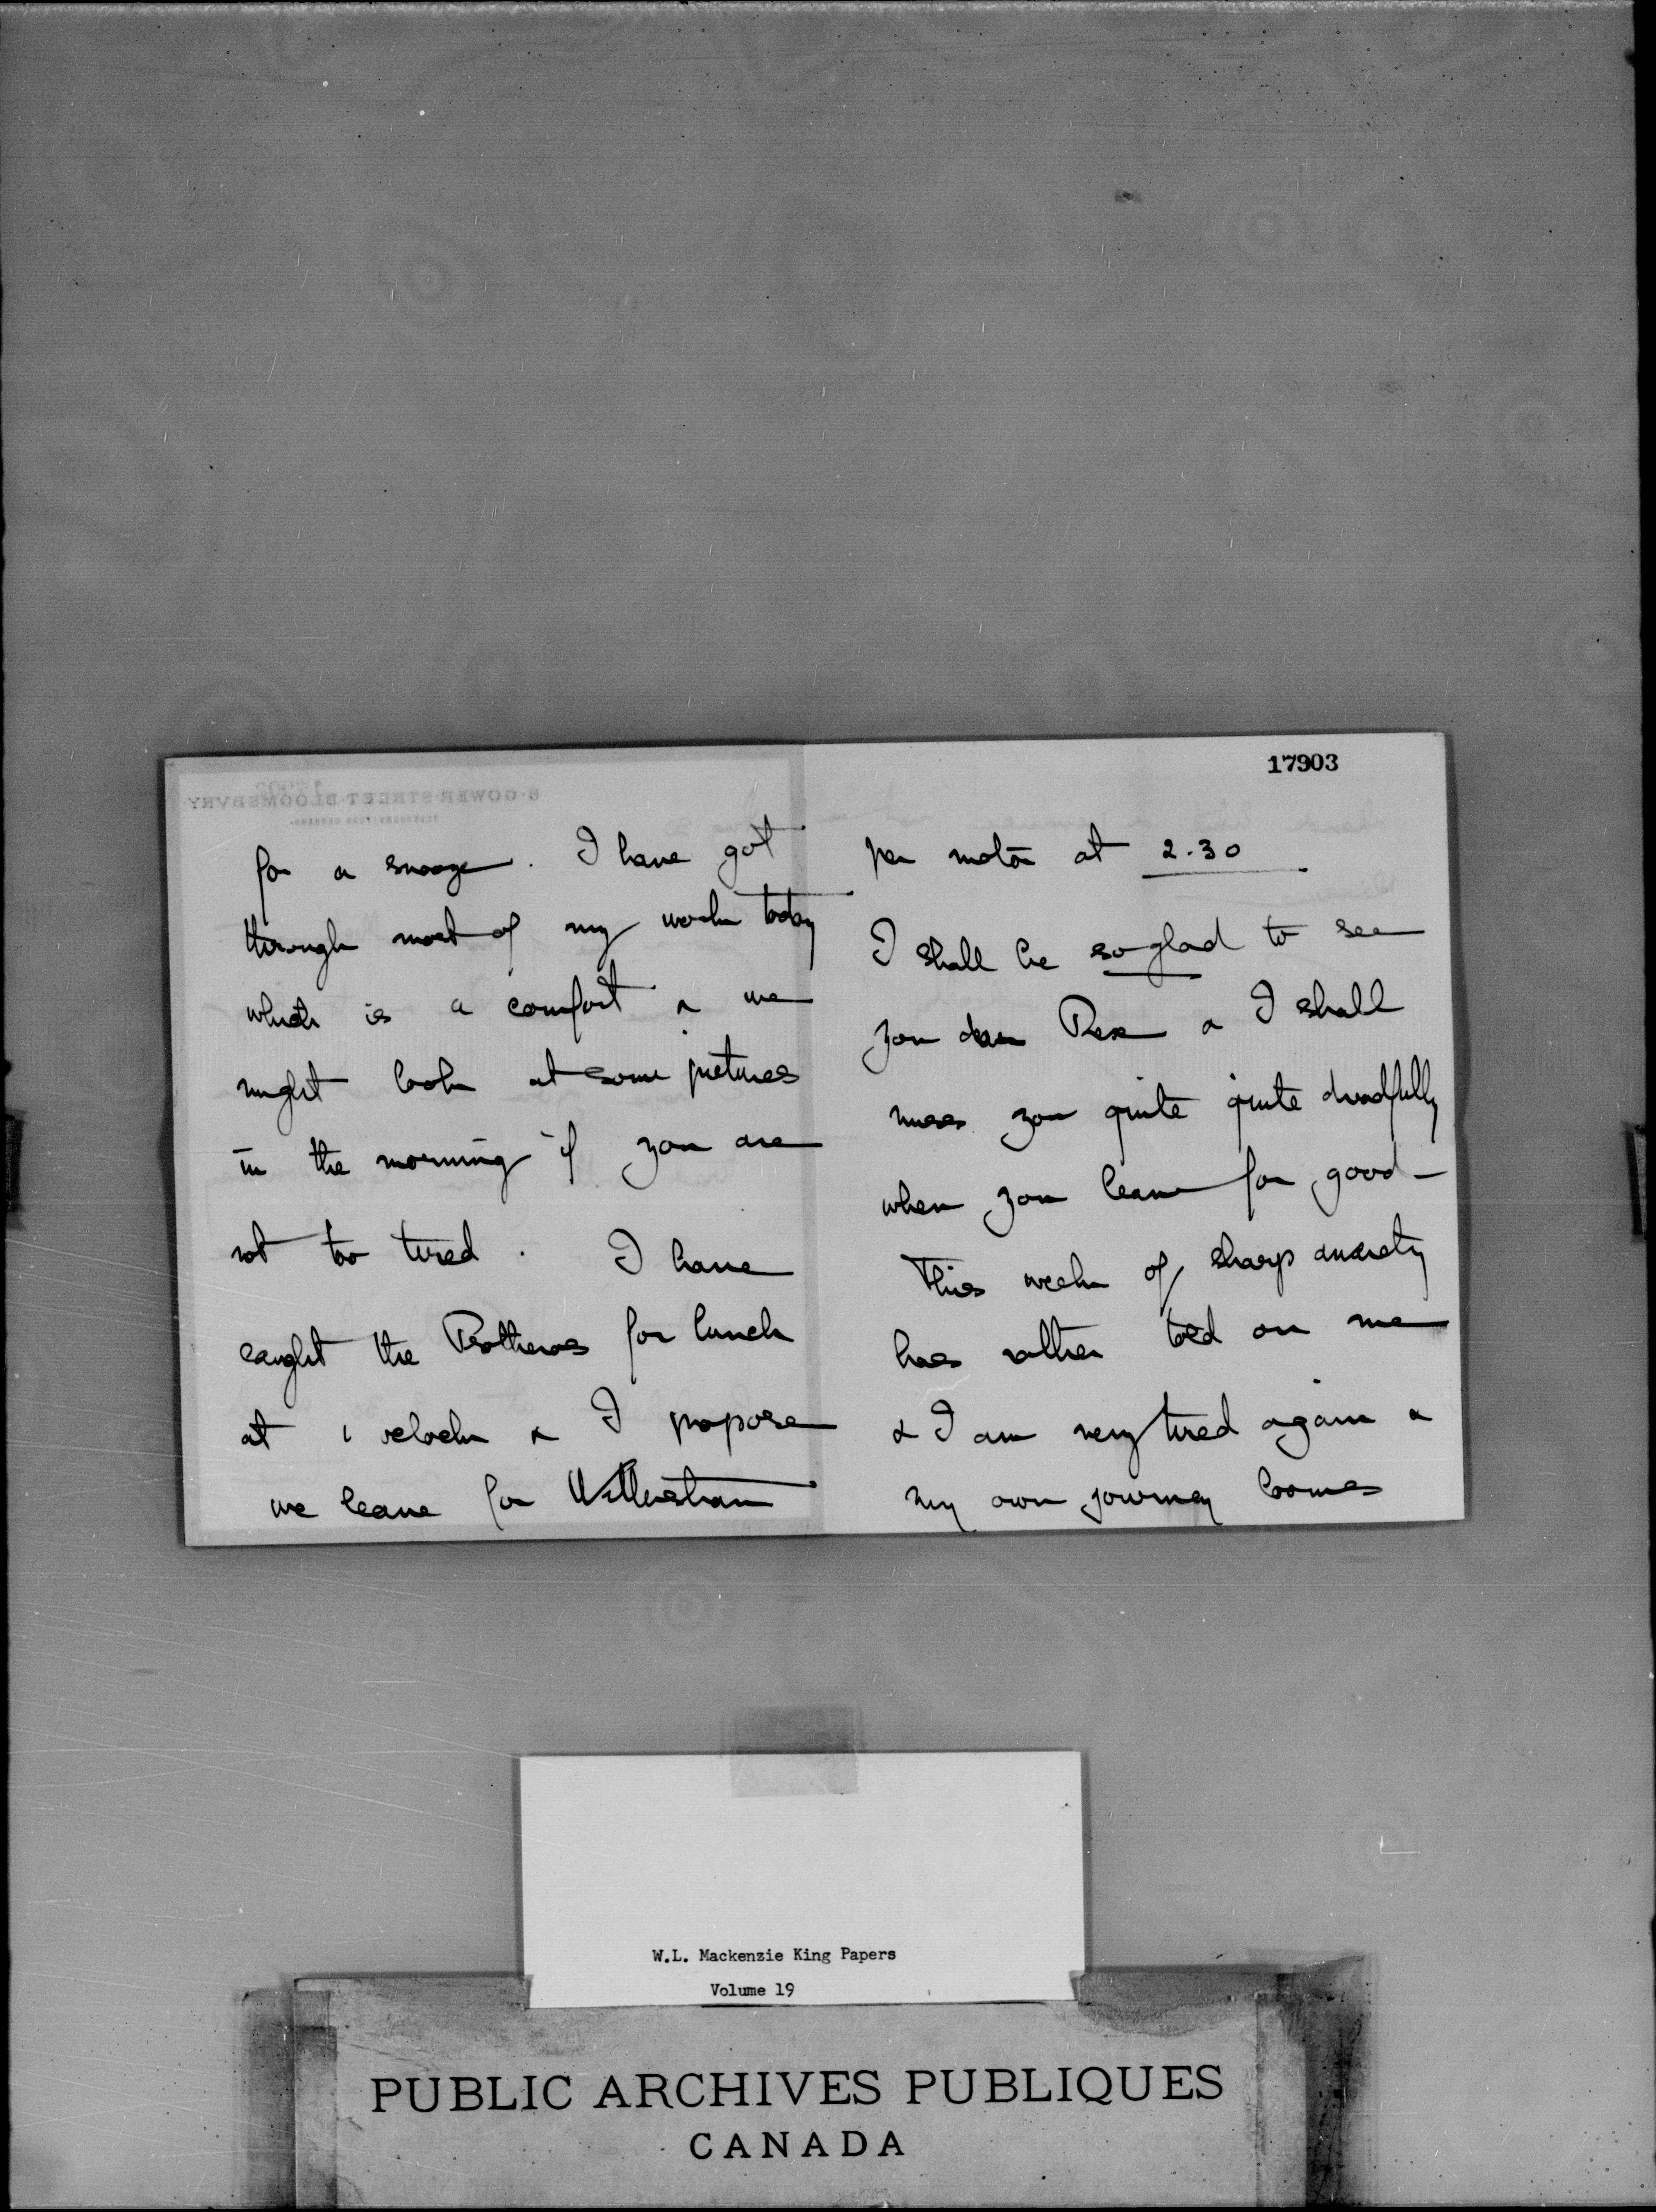 17903
for a snooze. I have got
through most of my work today
which is a comfort & we
might look at some pictures
in the morning if you are
not too tired. I have
caught the Protheros for lunch
at 1 oclock & I propose
we leave for Wittersham
per motor at 2.30
I shall be so glad to see
you dear Rex & I shall
miss you quite quite dreadfully
when you leave for good —
This week of sharp anxiety
has rather told on me
& I am very tired again &
my own journey looms
W.L. Mackenzie King Papers
Volume 19
PUBLIC ARCHIVES PUBLIQUES
CANADA